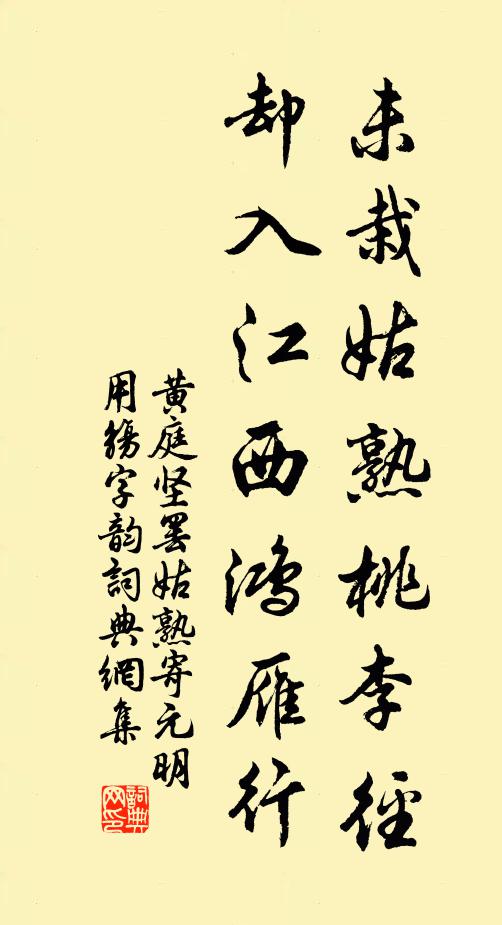 未栽姑熟桃李徑
却入江西鸿雁行
黄庭坚罢姑熟寄元明
用觞字韵詞典網集
詞典網印